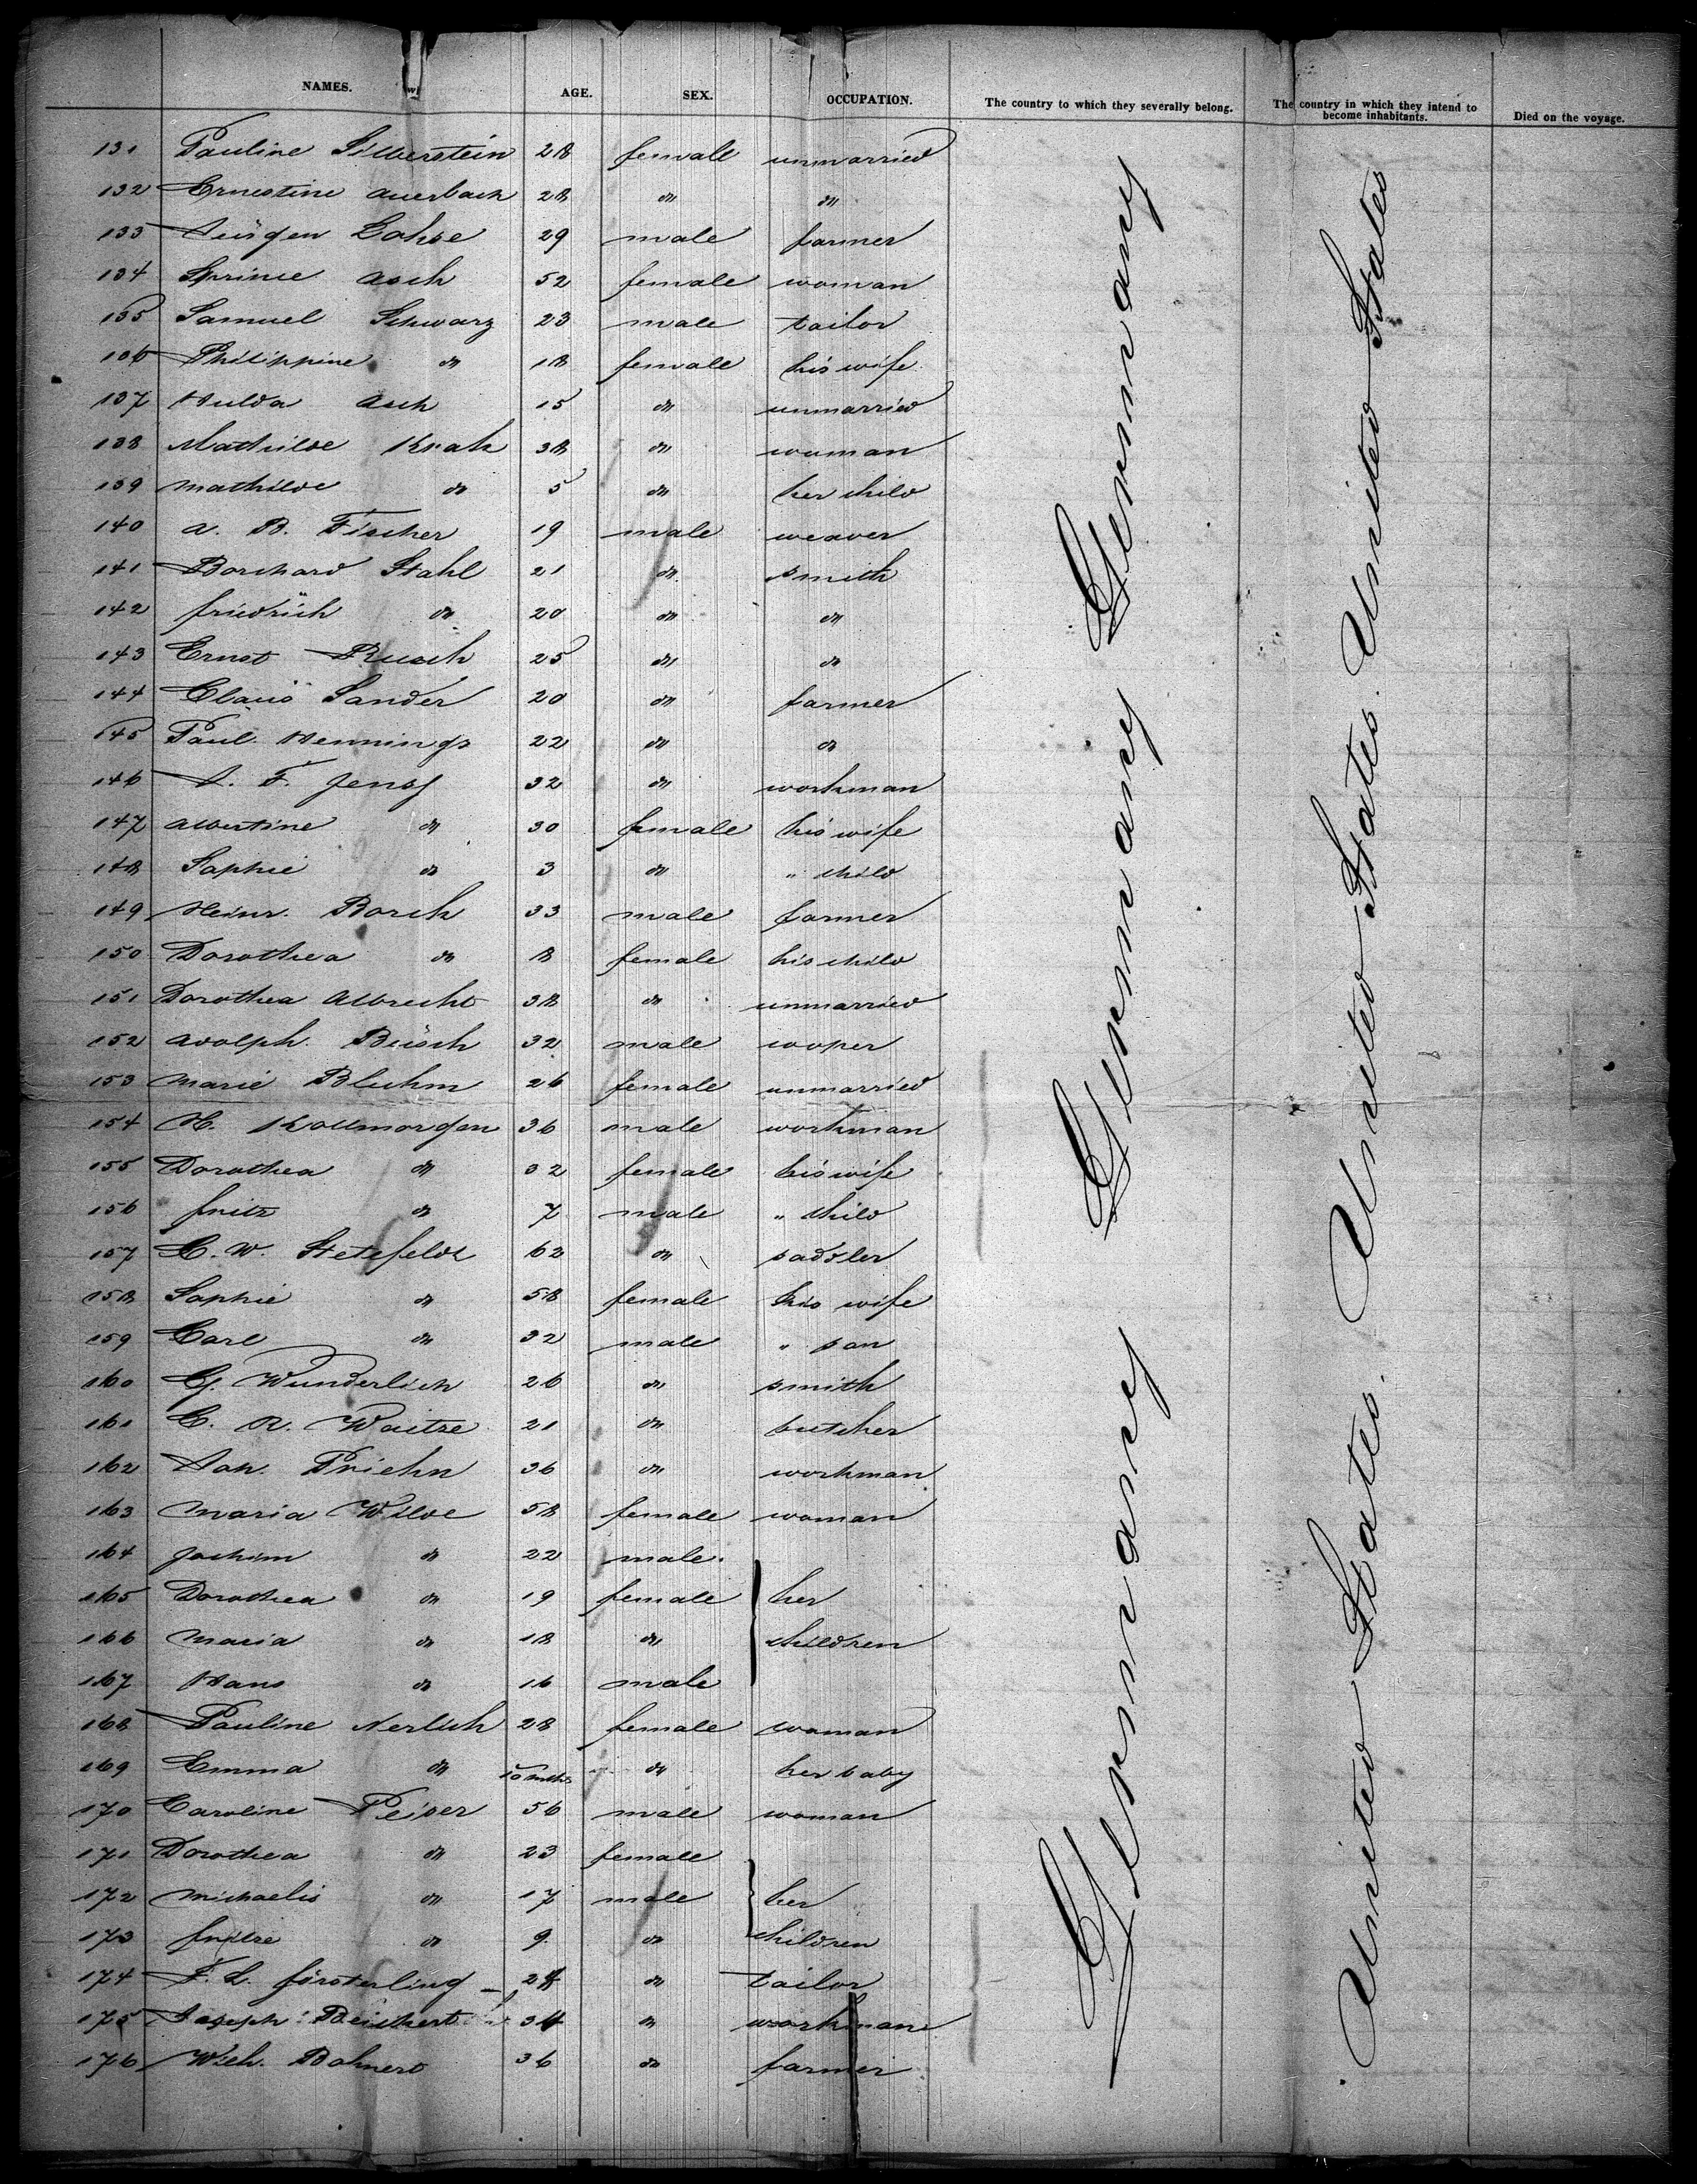 NAMES. AGE. SEX. OCCUPATION. The country to which they severally belong. The country in which they intend to become inhabitants. Died on the voyage.
131 Pauline Silberstein 28 female unmarried
132 Ernestine Auerbach 28 do do
133 Jürgen Lohse 29 male farmer
134 Sprinse Asch 52 female woman
135 Samuel Schwarz 23 male tailor
136 Philippine do 18 female his wife
137 Hulda Asch 15 do unmarried
138 Mathilde Krak 38 do woman
139 Mathilde do 5 do her child
140 A. B. Fischer 19 male weaver
141 Borchard Stahl 21 do smith
142 Friedrich do 20 do do
143 Ernst Rusch 25 do do
144 Claus Sander 20 do farmer
145 Paul Hennings 22 do do
146 J. F. Jenss 32 do workman
147 Albertine do 30 female his wife
148 Sophie do 3 do " child
149 Heinr. Borch 33 male farmer
150 Dorothea do 8 female his child
151 Dorothea Albrecht 38 do unmarried
152 Adolph Büsch 32 male cooper
153 Marie Bluhm 26 female unmarried
154 H. Kollmorgen 36 male workman
155 Dorothea do 32 female his wife
156 Fritz do 7 male " child
157 C. W. Stetefeldt 62 do saddler
158 Sophie do 58 female his wife
159 Carl do 32 male " son
160 G. Wunderlich 26 do smith
161 C. R. Waitze 21 do butcher
162 Joh. Priehn 36 do workman
163 Maria Wilde 58 female woman
164 Jochim do 22 male
165 Dorothea do 19 female her
166 Maria do 18 do children
167 Hans do 16 male
168 Pauline Nerlich 28 female woman
169 Emma do 10 mths do her baby
170 Caroline Peiser 56 male woman
171 Dorothea do 23 female
172 Michaelis do 17 male her
173 do 9 do children
174 F. L. Försterling 24 do tailor
175 Joseph Beichert 34 do workman
176 Wilh. Bohnert 36 do farmer
Germany Germany Germany Germany
United States. United States. United States. United States